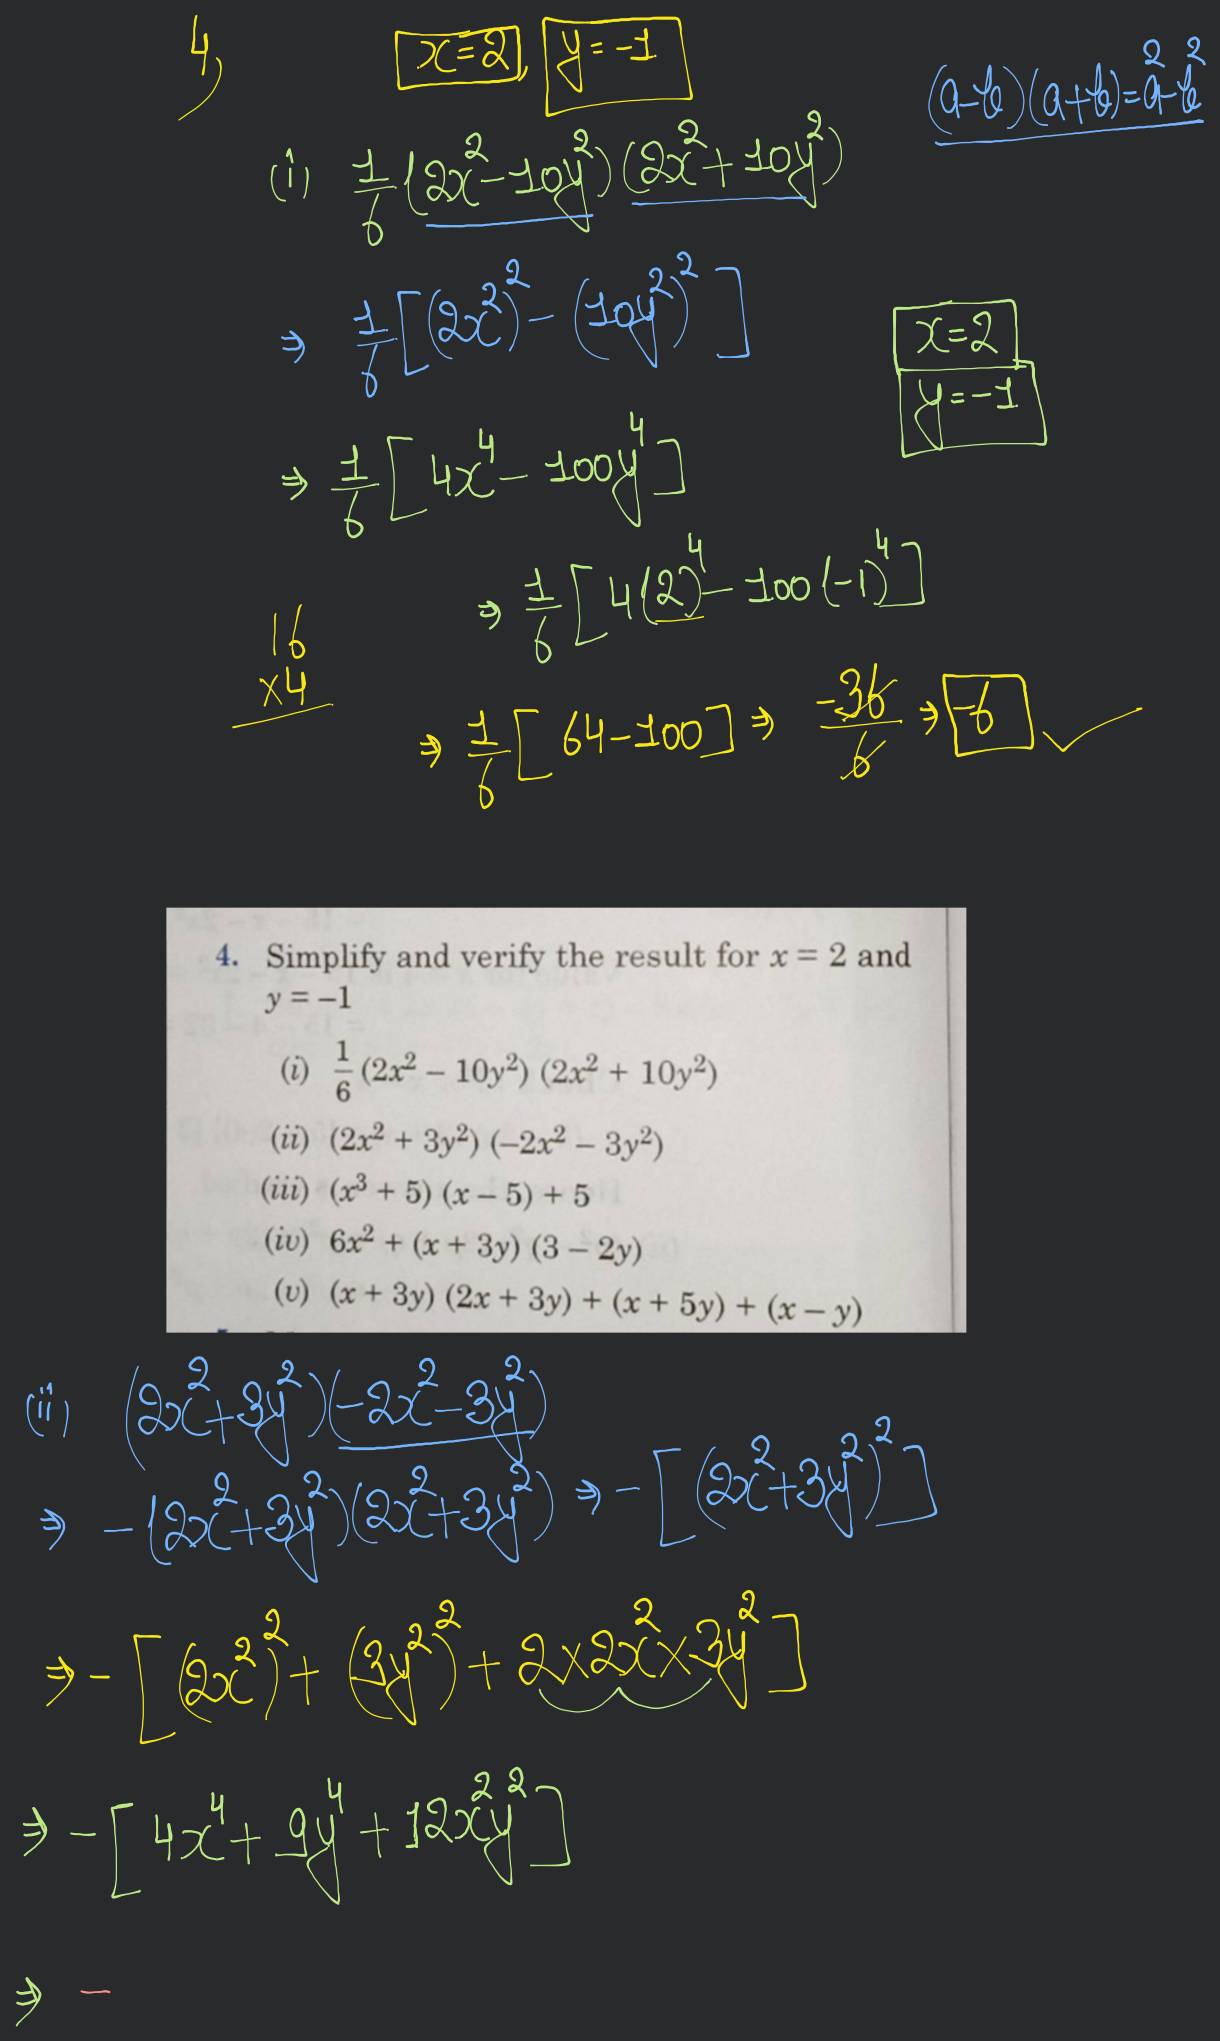 4,
x=2, y=-1
(a-b)(a+b)=a²-b²
(i) 1/6 (2x²-10y²)(2x²+10y²)
⇒ 1/6 [(2x²)² - (10y²)²]
x=2
y=-1
⇒ 1/6 [4x⁴ - 100y⁴]
⇒ 1/6 [4(2)⁴ - 100(-1)⁴]
16
×4
⇒ 1/6 [64-100] ⇒ -36/6 ⇒ -6
4. Simplify and verify the result for x = 2 and
y = –1
(i) 1/6 (2x² – 10y²) (2x² + 10y²)
(ii) (2x² + 3y²) (–2x² – 3y²)
(iii) (x³ + 5) (x – 5) + 5
(iv) 6x² + (x + 3y) (3 – 2y)
(v) (x + 3y) (2x + 3y) + (x + 5y) + (x – y)
(ii) (2x²+3y²)(-2x²-3y²)
⇒ -(2x²+3y²)(2x²+3y²) ⇒ -[(2x²+3y²)²]
⇒ -[(2x²)² + (3y²)² + 2×2x²×3y²]
⇒ -[4x⁴ + 9y⁴ + 12x²y²]
⇒ -